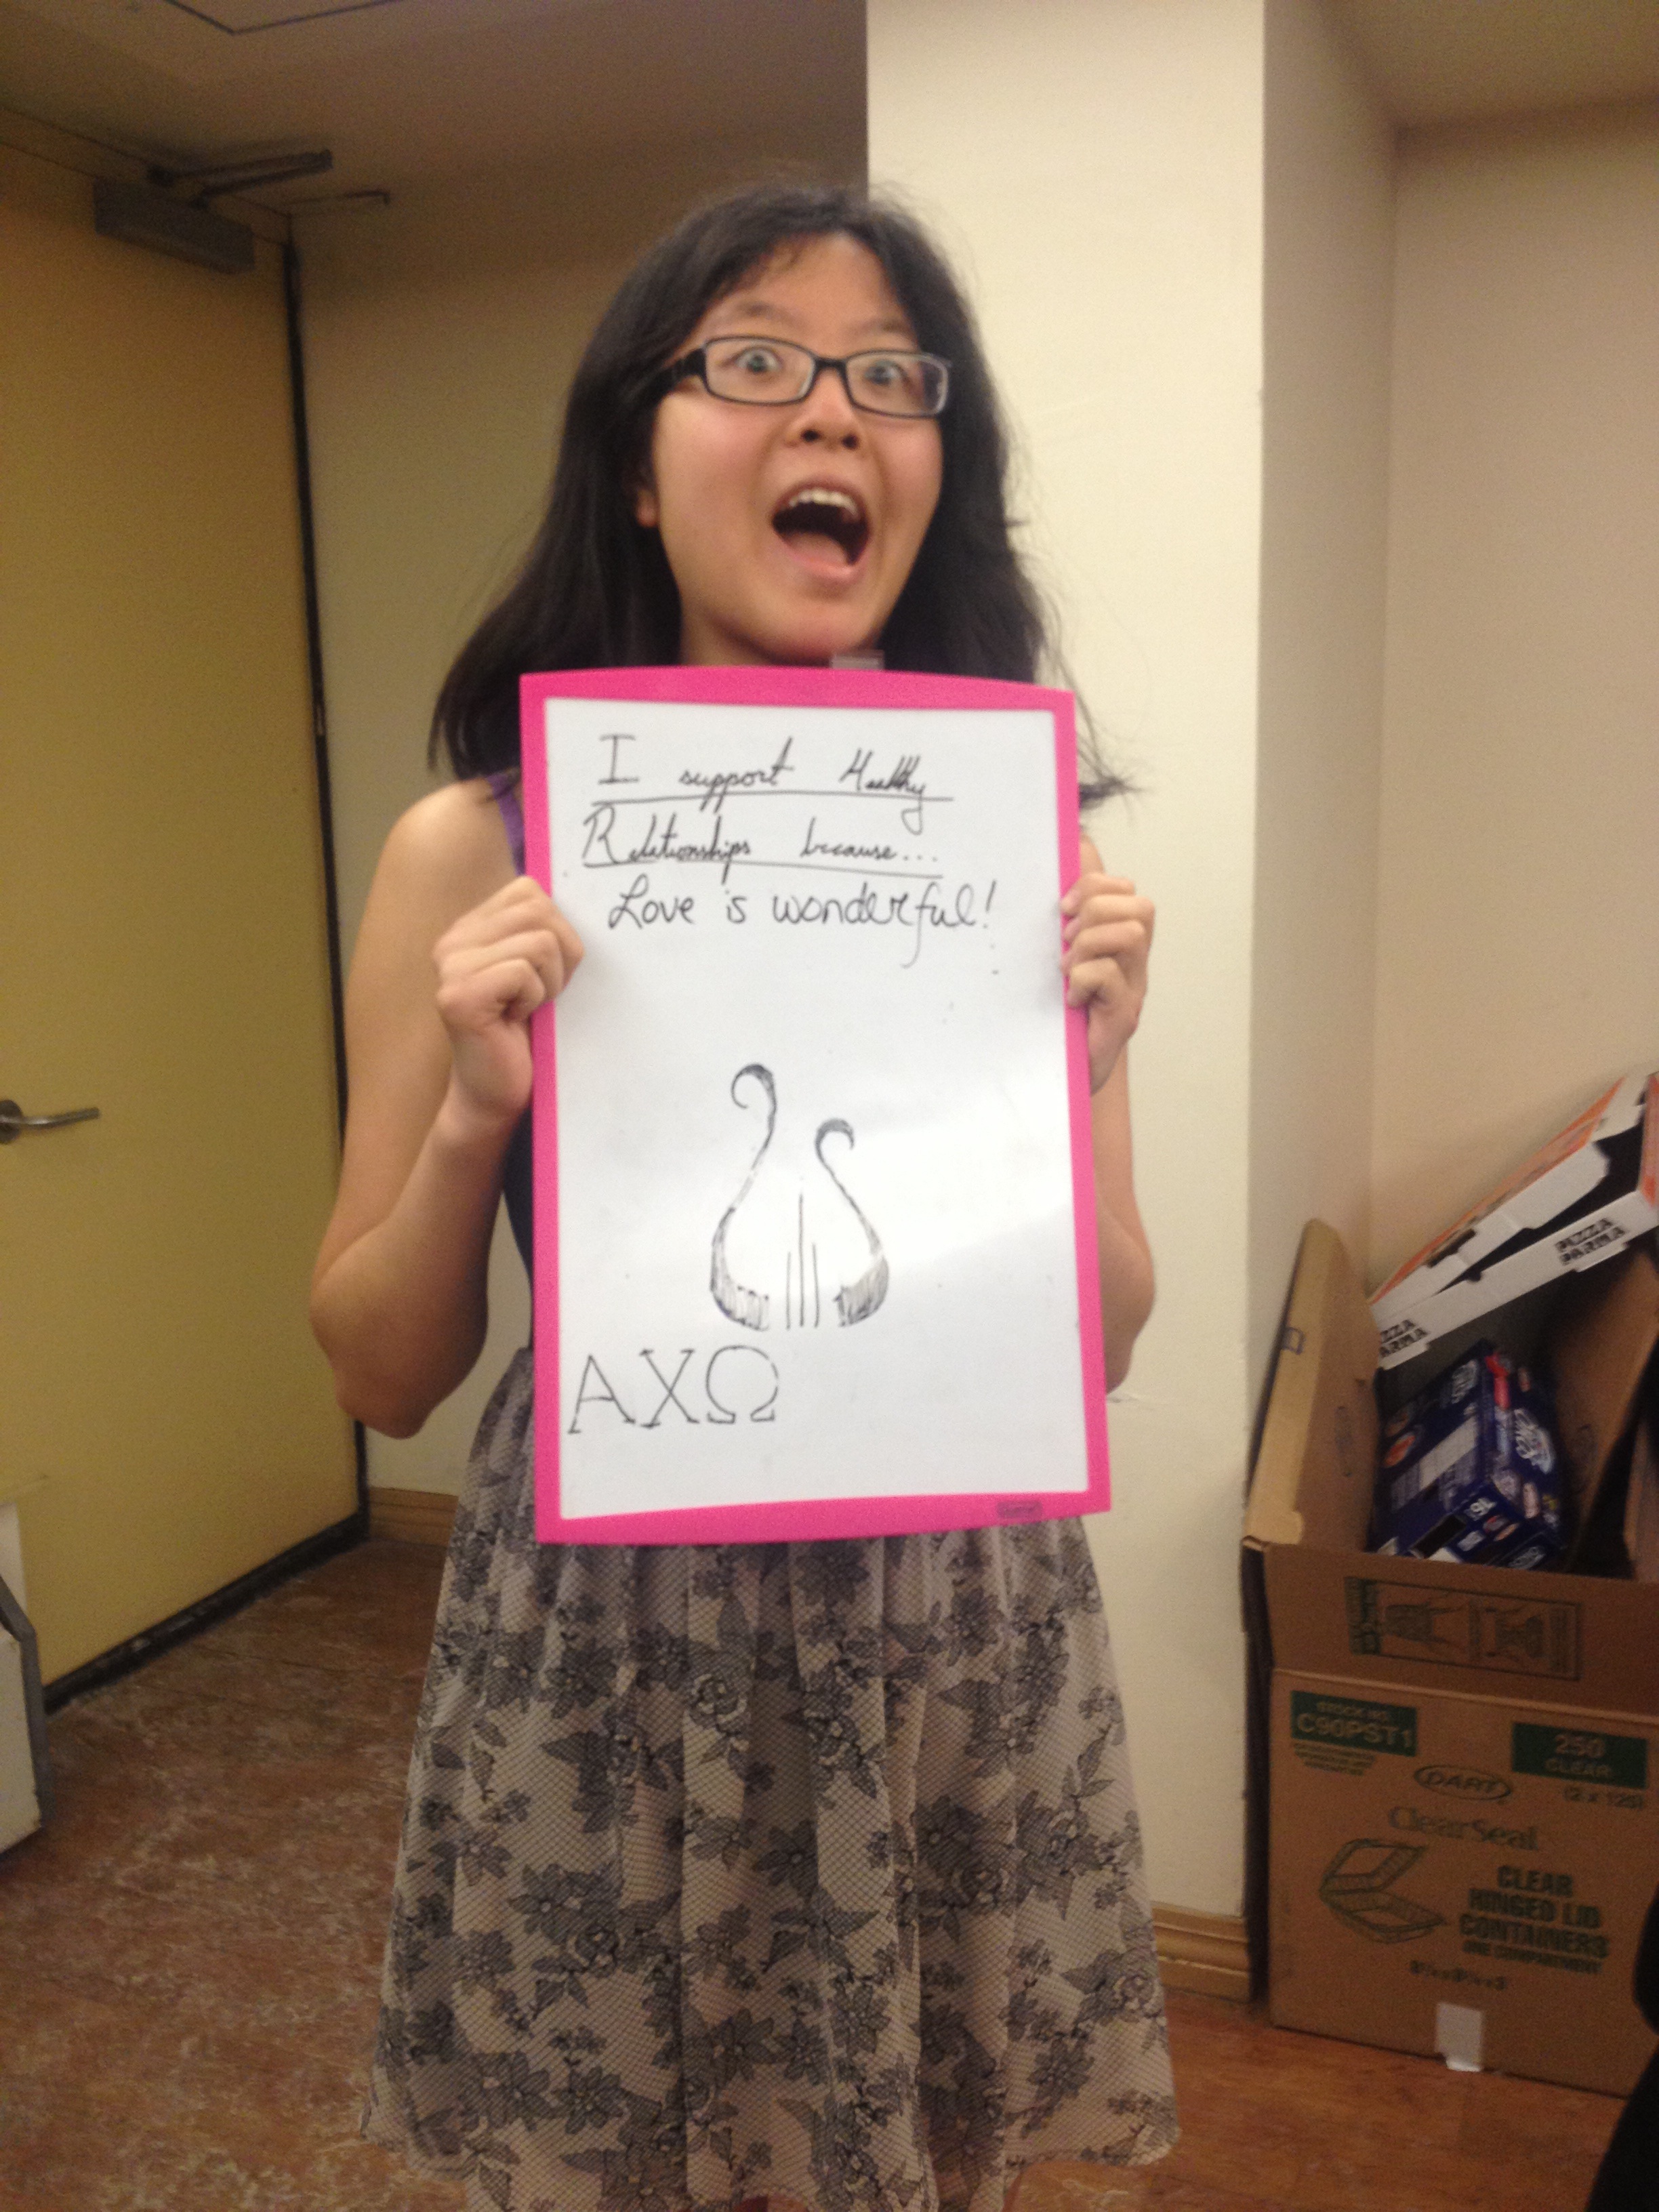 I support Healthy
Relationships because...
Love is wonderful!
ΑΧΩ
PIZZA
PARMA
ZZA
ARMA
STOCK NO.
C90PST1
250
CLEAR
(2 x 125)
DART
ClearSeal
CLEAR
HINGED LID
CONTAINERS
ONE COMPARTMENT